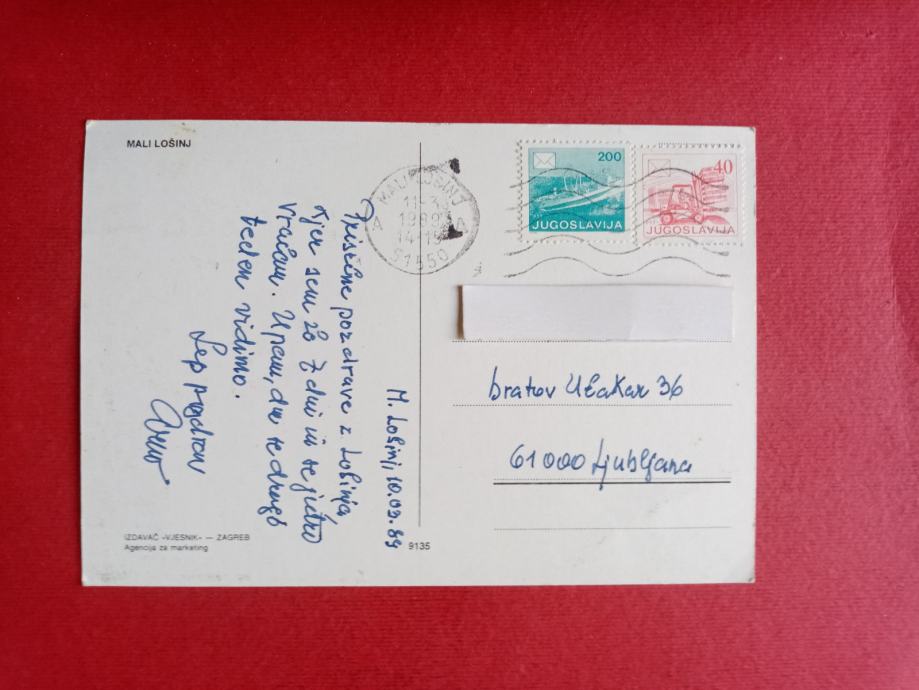 MALI LOŠINJ
M. Lošinj, 10.03.89
Prisrčne pozdrave z Lošinja,
kjer sem že 7 dni in se jutro
vračam. Upam, da se drugi
teden vidimo.
Lep pozdrav
MALI LOŠINJ
11-3
1989
14-19
A A
51550
200
JUGOSLAVIJA
40
JUGOSLAVIJA
bratov Učakar 36
61000 Ljubljana
IZDAVAČ »VJESNIK« — ZAGREB
Agencija za marketing
9135